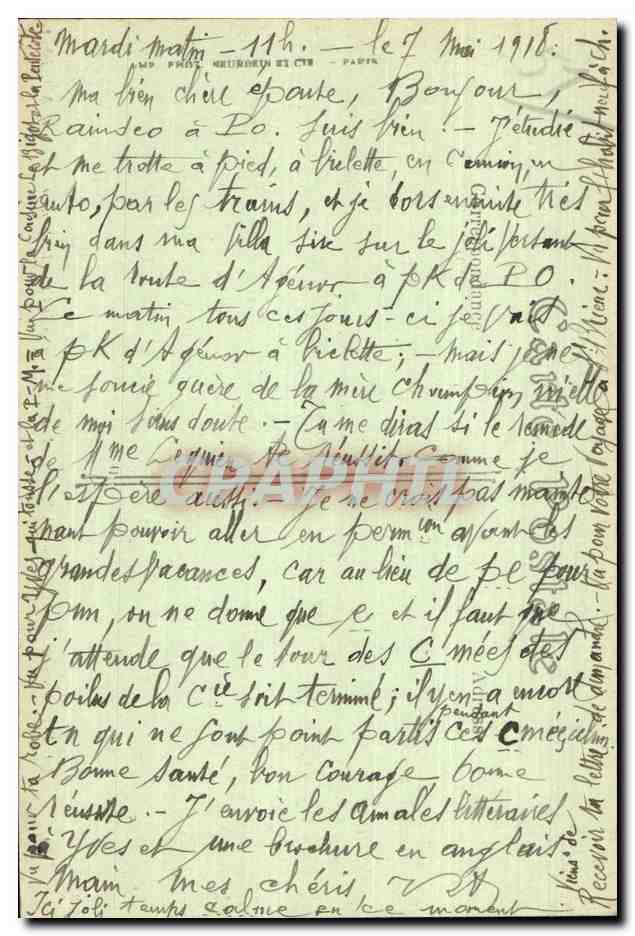 Mardi matin - 11h. - le 7 Mai 1918.
IMP. PHOT. NEURDEIN ET CIE - PARIS
Ma bien chère epouse, Bonjour,
à P.O. Suis bien. - J'étudie
et me trotte à pied, à biclette, en camion, en
auto, par les trains, et je dors ensuite très
bien dans ma villa sise sur le joli versant
de la route d'Agénor à PK de P.O.
Ce matin, tous ces jours-ci je vais
à PK d'Agénor à biclette; - mais je ne
me soucie guère de la mère Champion, ni elle
de moi sans doute. - Tu me diras si le remède
de Mme a réussit. Comme je
l'espère aussi. Je ne crois pas mainte
nant pouvoir aller en permion avant les
grandes vacances, car au lieu de pe pour
, on ne donne que e et il faut que
j'attende que le tour des C mées des
poilus de la Cie soit terminé; il y en a encore
tn qui ne sont point partis pendant ces C mées
Bonne santé, bon courage bonne
réussite. - J'envoie les annales littéraires
à Yves et une brochure en anglais
Main. Mes chéris
Ici joli temps calme en ce moment
Vu pour ta robe. - Vu pour Yves qui tousse et la P.M. - Vu pour la cousine Le Bigot et la Pentecôte
Viens de
Recevoir ta lettre de dimanche. - Vu pour votre voyage - Vu pour
Carte Postale
Correspondance
Adresse
CPAPHIL